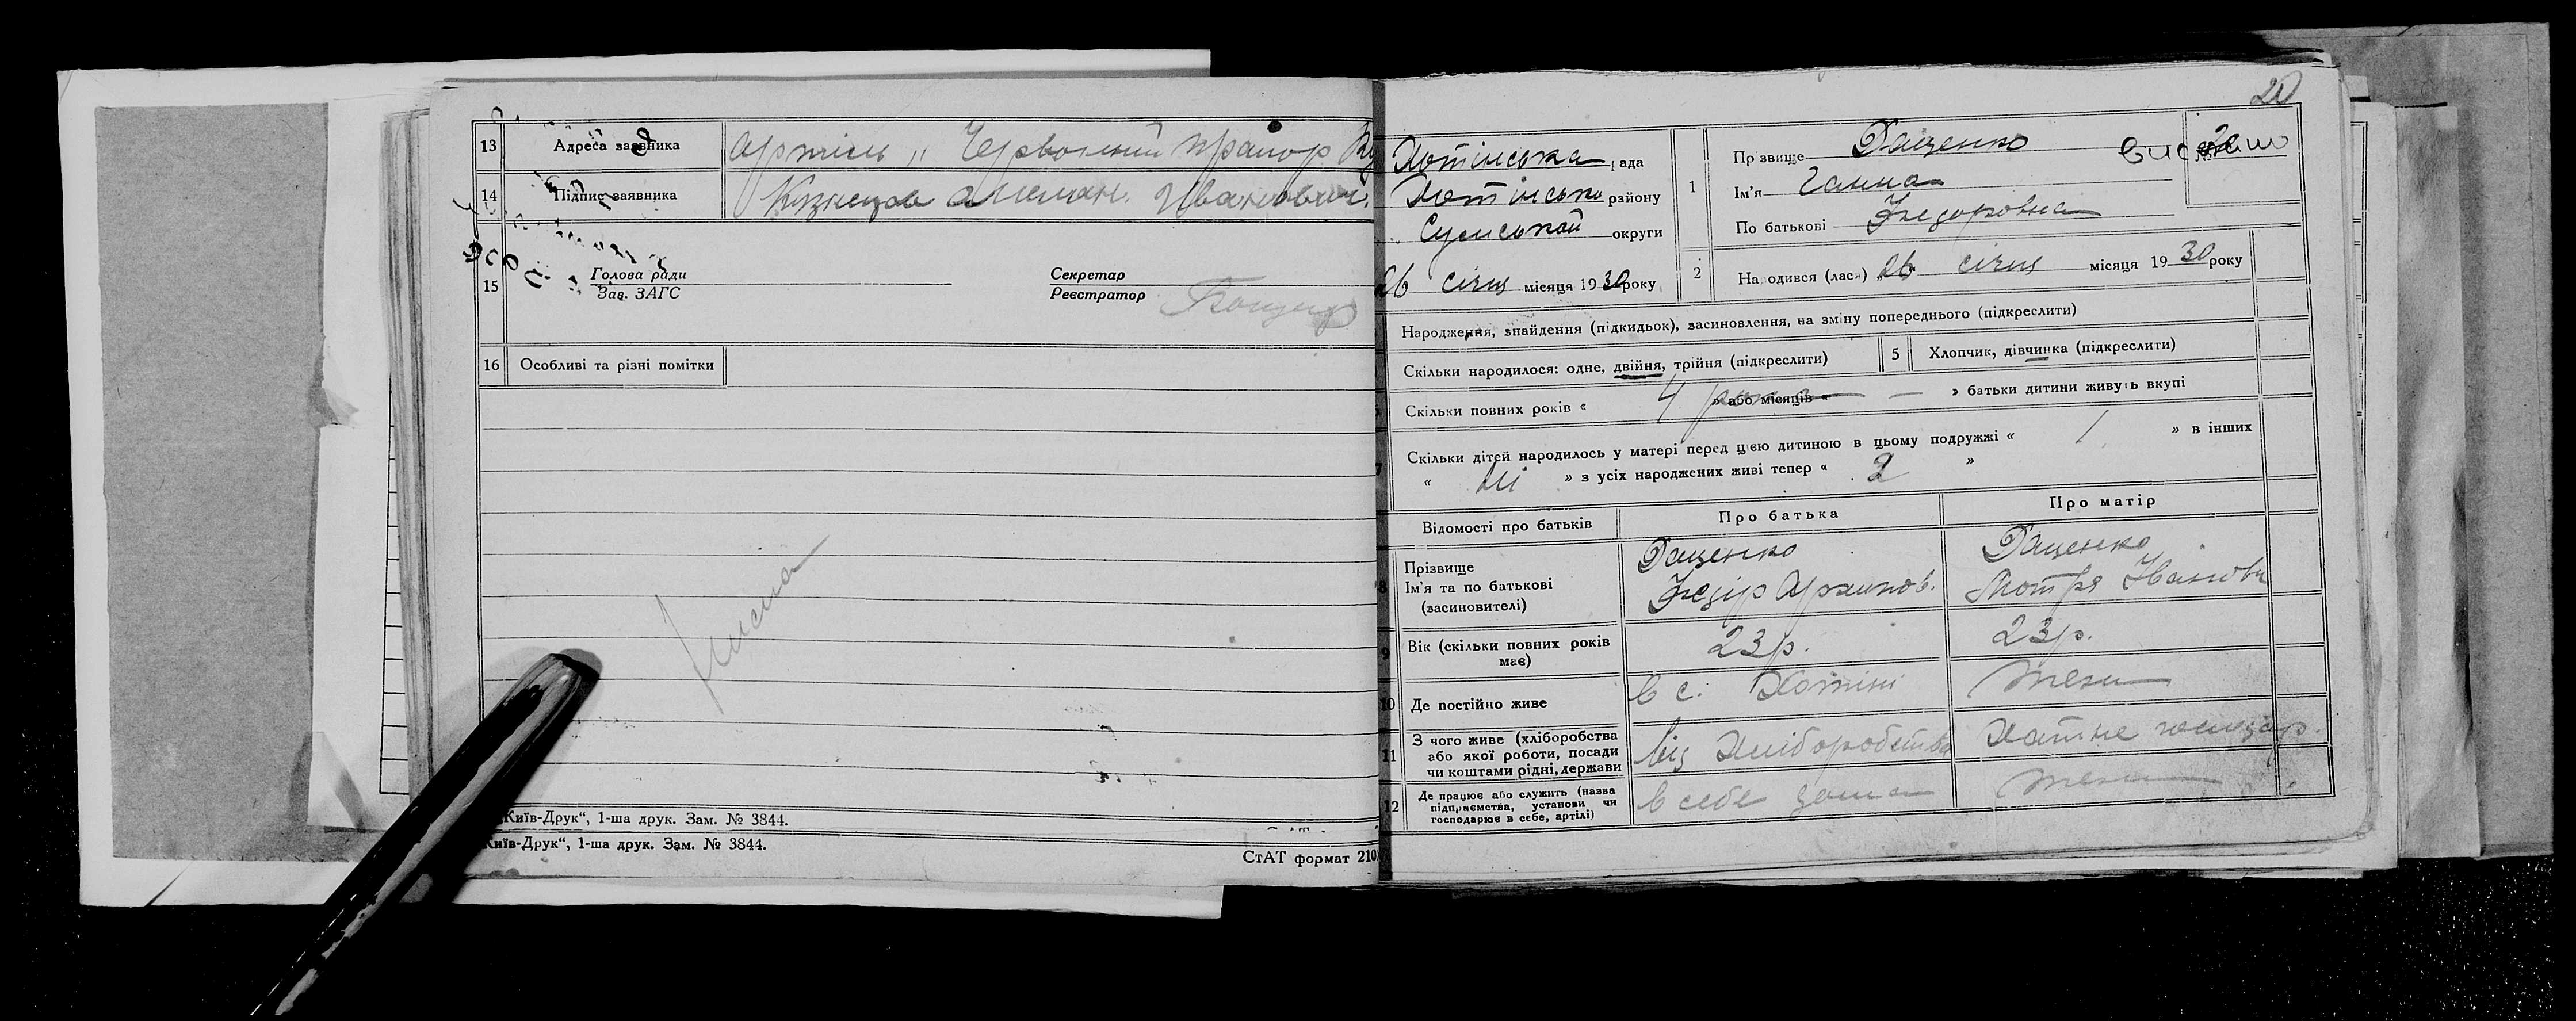 20
13 Адреса заявника Артіль „ Червоний прапор
14 Підпис заявника Кузнецов Иванович.
15 Голова ради
Зав. ЗАГС
Секретар
Реєстратор
16 Особливі та різні помітки
„Київ-Друк“, 1-ша друк. Зам. № 3844.
Київ-Друк“, 1-ша друк. Зам. № 3844.
СтАТ формат 210
Хотінська рада
Хотінсько району
Сумської округи
26 січня місяця 1930 року
1 Прізвище Даценко
Ім'я Ганна
По батькові Федоровна
2 Народився (лась) 26 січня місяця 1930 року
Народження, знайдення (підкидьок), засиновлення, на зміну попереднього (підкреслити)
Скільки народилося: одне, двійня, трійня (підкреслити)
5 Хлопчик, дівчинка (підкреслити)
Скільки повних років « 4 роки » або місяців « — » батьки дитини живуть вкупі
7 Скільки дітей народилось у матері перед цією дитиною в цьому подружжі « 1 » в інших
« ні » з усіх народжених живі тепер « 2 »
Відомості про батьків Про батька Про матір
8 Прізвище Даценко Даценко
Ім'я та по батькові Федір Архипов. Мотря Іванівн
(засиновителі)
9 Вік (скільки повних років має) 23 р. 23 р.
10 Де постійно живе в с. Хотіні теж
11 З чого живе (хліборобства
або якої роботи, посади
чи коштами рідні, держави
від хліборобства Хатне господар.
12 Де працює або служить (назва
підприємства, установи чи
господарює в себе, артілі)
в себе дома теж